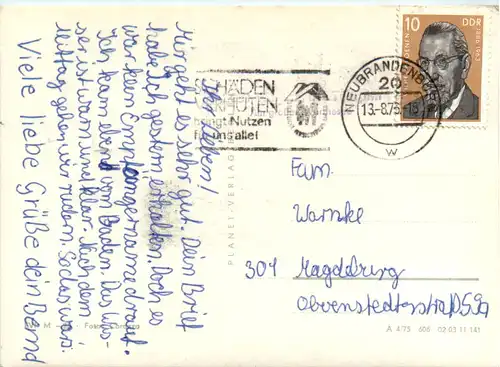 Ihr Lieben!
Mir geht es sehr gut. Dein Brief
habe ich gestern erhalten. Doch es
war kein Empfängername drauf.
Ich kam eben vom Baden. Das Was-
ser ist warm und klar. Nach dem
Mittag gehen wir rudern. Sodas wars.
Viele liebe Grüße dein Bernd
SCHÄDEN
VERHÜTEN
bringt Nutzen
für uns alle!
NEUBRANDENBURG
20
13.-8.75.-18
w
10
DDR
PLANET-VERLAG
Fam.
Warnke
301 Magdeburg
Obvenstedterstraße 59a
M
Foto:
A 4/75 606 02 03 11 141